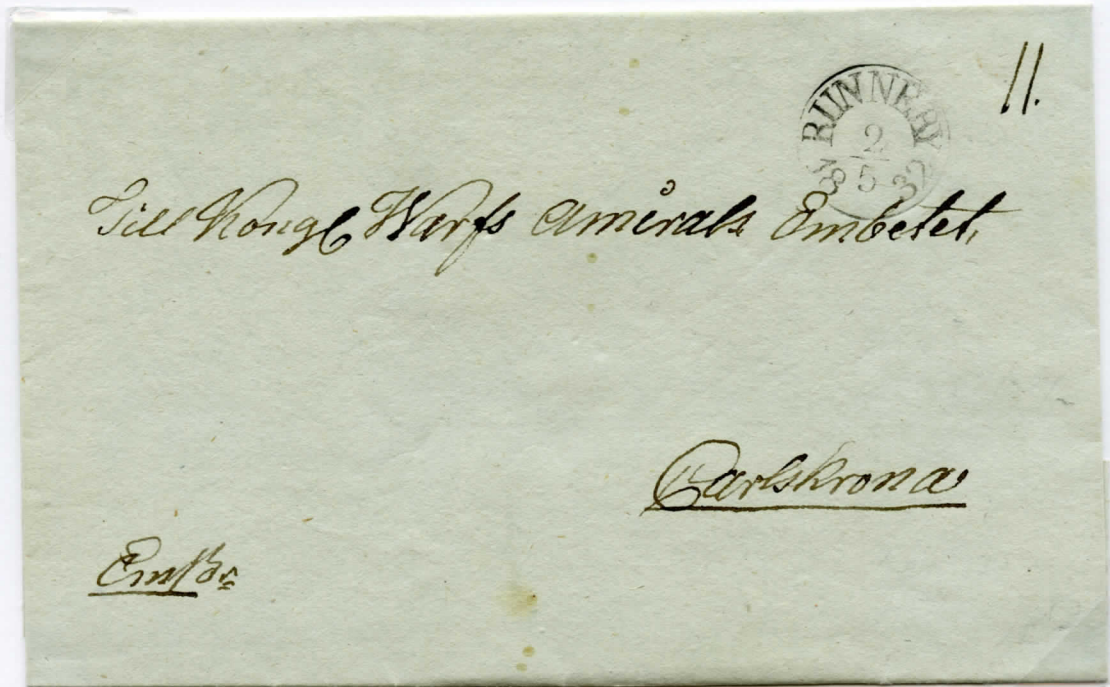 11.
RUNNEBY
2
18 5 32
Till Kongl Warfs Amirals Embetet,
Carlskrona